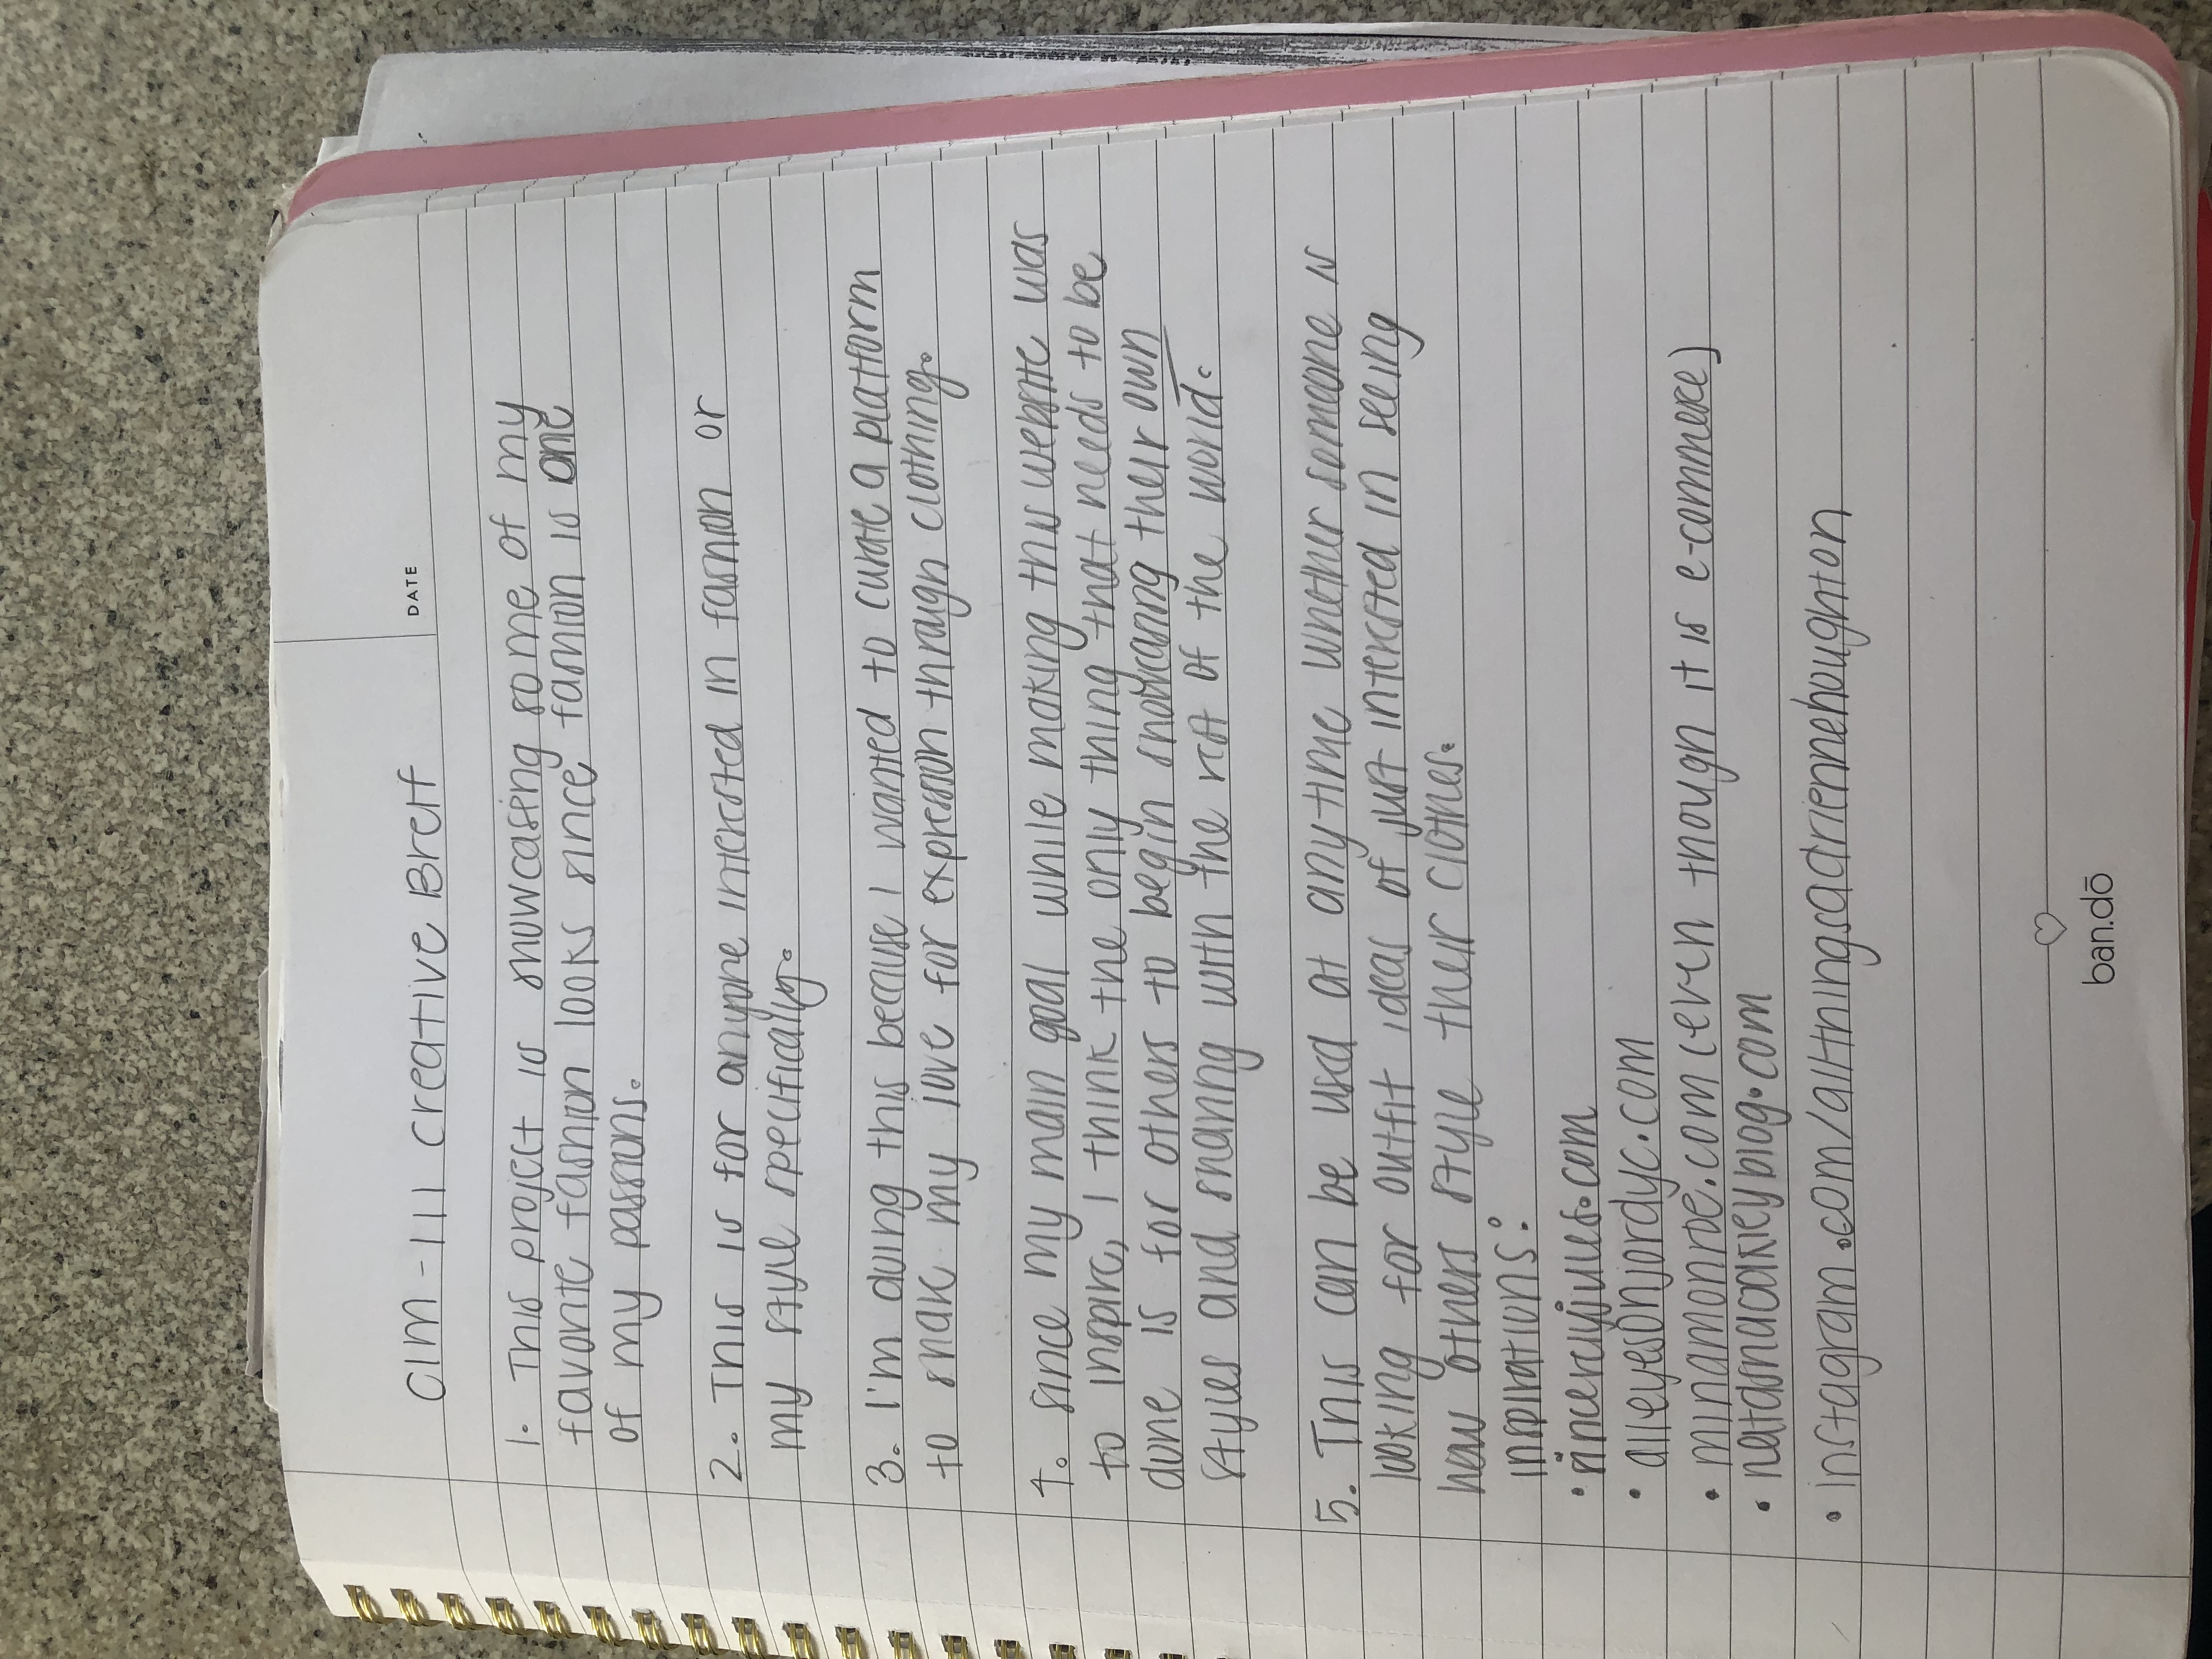 CIM-111 Creative Breif
DATE
1. This project is showcasing some of my
favorite fashion looks since fashion is one
of my passions.
2. This is for anyone interested in fashion or
my style specifically.
3. I'm doing this because I wanted to curate a platform
to share my love for expression through clothing.
4. Since my main goal while making this website was
to inspire, I think the only thing that needs to be
done is for others to begin showcasing their own
styles and sharing with the rest of the world.
5. This can be used at anytime whether someone is
looking for outfit ideas of just interested in seeing
how others style their clothes.
inspirations:
• sincerelyjules.com
• alleyesonjordyc.com
• minamonroe.com (even though it is e-commerce)
• natashaoakleyblog.com
• instagram.com/allthingsadriennehoughton
ban.dō